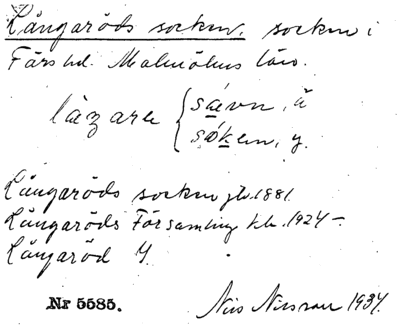 Långaröds socken, socken i
Färs hd. Malmöhus län.
làzare { sǽvn, ä
sǿken, y.
Långaröds socken jb. 1881.
Långaröds Församling kb. 1924 –
Långaröd Y.
Nr 5585. Nils Nilsson 1934.